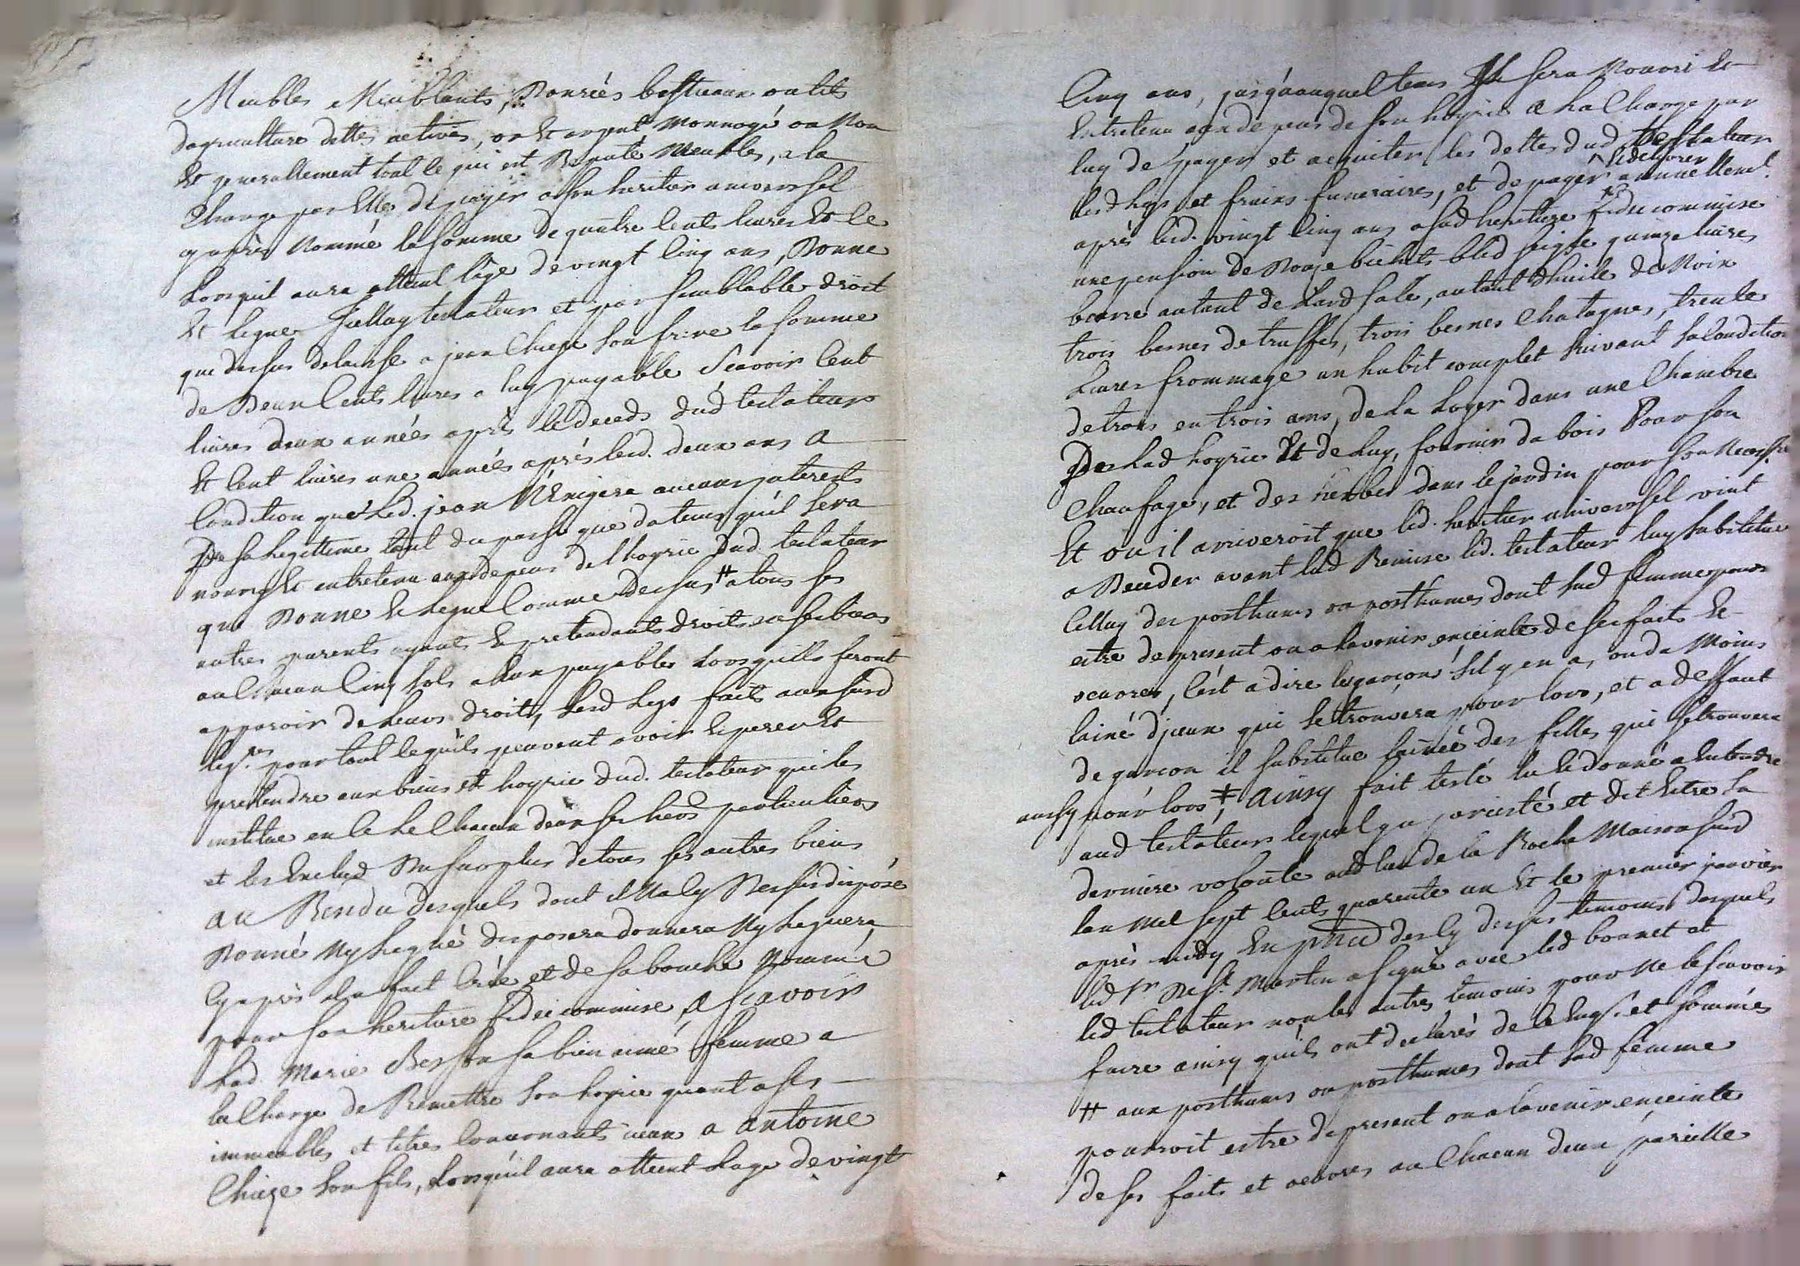 Meubles Meublants, Danrées bestiaux outils
dagriculture dettes actives, or Et argent Monnoyé ou Non
Et generallement tout ce qui est Reputé Meubles, a la
Charge par Elle de payer a son heritier universel
qy après Nommé la somme de quatre Cents livres Et ce
Lorsquil aura atteint lâge de vingt Cinq ans, Donne
Et legue Icelluy testateur et par semblable droit
que dessus delaisse a jean Chieze son frere la somme
de Deux Cents livres a luy payable Scavoir Cent
livres deux années après le Deceds dud testateur
Et Cent livres une année après lesd. deux ans a
Condition que led. jean N'Exigera aucuns interests
De sa legittime tant du passé que du temps qu'il sera
nourry Et entretenu aux depens de l'hoyrie dud. testateur
qui Donne Et legue Comme Dessus # a tous ses
autres parents ayants Et pretendants droits sur ses biens
au Chacun Cinq sols a Eux payables Lors quills feront
apparoir de leurs droits, lesd legs faits aux susd
leg.res pour tout ce quils peuvent avoir Esperer Et
pretendre aux biens et hoyrie dud. testateur qui les
institue en ce Le Chacun deux ses heos particuliers
et les Exclud Du surplus de tous ses autres biens
au Residu desquels dont il Na Cy Dessus disposé
Donné Ny legué disposera donnera Ny leguera
Cy après il a fait Créé et de sa bouche Nommé
pour son heritiere fideicommise, a scavoir
lad. Marie Besson sa bien aimé femme a
la Charge de Remettre son hoyrie quant a ses
immeubles et titres Concernants iceux a antoine
Chieze son fils, Lorsquil aura atteint lage de vingt
Cinq ans, jusqu'auquel tems Il sera Nourri Et
Entretenu aux depens de son hoyrie a la Charge par
luy de payer et acquiter les dettes dud testateur
lesd legs et frais funeraires, et de payer Et delivrer annuellem.t
après lesd. vingt Cinq ans a sad heritiere fideicommise
une pension de Douze bichets bled seigle quinze livres
beurre autant de Lard sale, autant dhuile de Noix
trois bennes de truffes, trois bennes Chataignes, trente
Livres frommage un habit complet suivant sa Condition
de trois en trois ans, de la Loger dans une Chambre
De sad hoyrie Et de luy fournir du bois Pour son
Chaufage, et des herbes dans le jardin pour son Necess.re
Et ou il arriveroit que led. heritier universel vint
a Deceder avant lad Remise led. testateur luy substitue
Celluy des posthumes ou posthumes dont sad femme pour.
estre de present ou a lavenir enceinte de ses faits Et
oeuvres, C'est a dire le garçon s'il y en a, ou du Moins
lainé d'jceux qui se trouvera pour lors, et a deffaut
de garcon il substitue lainée des filles qui se trouvera
aussy pour lors # Ainsy fait testé lu Et donné a Entendre
aud testateur lequel y a persisté et dit Estre sa
derniere volonté aud lieu de la Roche Maison susd
lan Mil sept Cents quarente un Et le premier janvier
après midy En p.nce des Cy dessus temoins desquels
led s.r De S.t Martin a signé avec led bonnet et
led testateur non les autres temoins pour Ne le scavoir
faire ainsy quils ont declarés de ce Enqs. et sommés
# aux posthumes ou posthumes dont sad femme
pourroit estre de present ou a lavenir enceinte
de ses faits et oeuvres au Chacun deux pareille